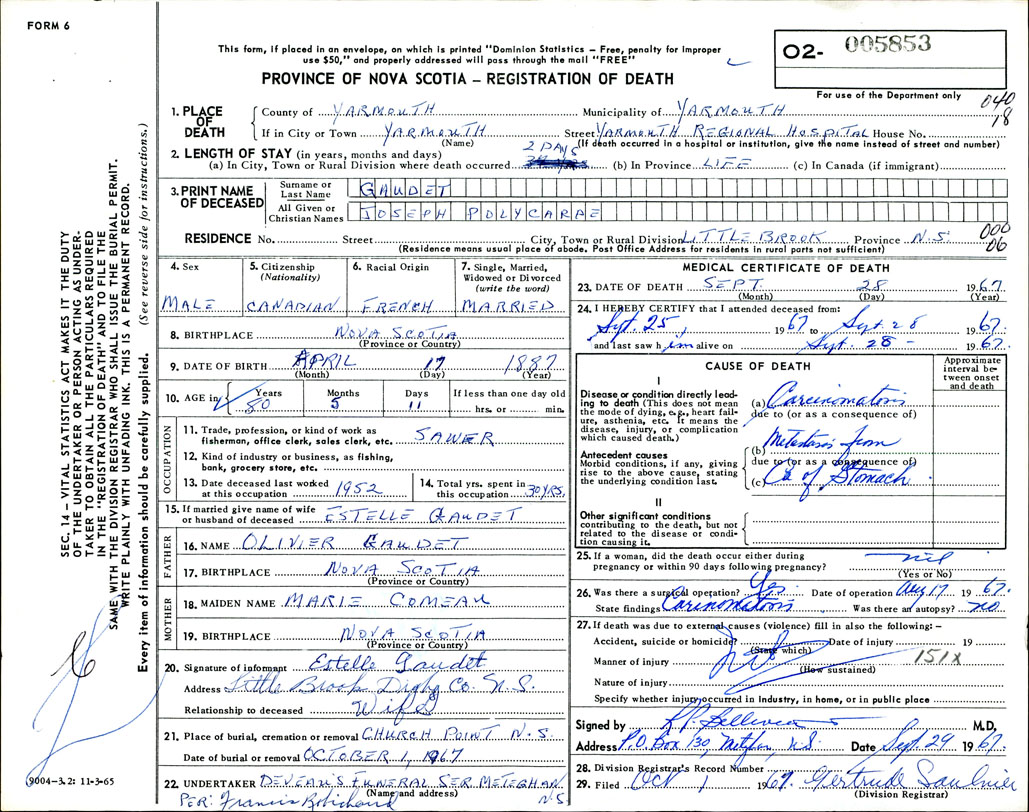 FORM 6
This form, if placed in an envelope, on which is printed "Dominion Statistics – Free, penalty for improper
use $50," and properly addressed will pass through the mail "FREE"
PROVINCE OF NOVA SCOTIA – REGISTRATION OF DEATH
02- 005853
For use of the Department only
040
18
1. PLACE OF DEATH County of YARMOUTH Municipality of YARMOUTH
If in City or Town YARMOUTH Street YARMOUTH REGIONAL HOSPITAL House No.
(Name) (If death occurred in a hospital or institution, give the name instead of street and number)
2. LENGTH OF STAY (in years, months and days) 2 DAYS
(a) In City, Town or Rural Division where death occurred (b) In Province LIFE (c) In Canada (if immigrant)
3. PRINT NAME OF DECEASED Surname or Last Name GAUDET
All Given or Christian Names JOSEPH POLYCARPE
000
06
RESIDENCE No. Street City, Town or Rural Division LITTLE BROOK Province N.S.
(Residence means usual place of abode. Post Office Address for residents in rural parts not sufficient)
4. Sex MALE
5. Citizenship (Nationality) CANADIAN
6. Racial Origin FRENCH
7. Single, Married, Widowed or Divorced (write the word) MARRIED
8. BIRTHPLACE NOVA SCOTIA
(Province or Country)
9. DATE OF BIRTH APRIL 17 1887
(Month) (Day) (Year)
10. AGE in Years 80 Months 5 Days 11 If less than one day old hrs. or min.
OCCUPATION
11. Trade, profession, or kind of work as fisherman, office clerk, sales clerk, etc. SAWER
12. Kind of industry or business, as fishing, bank, grocery store, etc.
13. Date deceased last worked at this occupation 1952
14. Total yrs. spent in this occupation 30 YRS.
15. If married give name of wife or husband of deceased ESTELLE GAUDET
FATHER
16. NAME OLIVIER GAUDET
17. BIRTHPLACE NOVA SCOTIA
(Province or Country)
MOTHER
18. MAIDEN NAME MARIE COMEAU
19. BIRTHPLACE NOVA SCOTIA
(Province or Country)
20. Signature of informant Estelle Gaudet
Address Little Brook Digby Co. N.S.
Relationship to deceased Wife
21. Place of burial, cremation or removal CHURCH POINT N.S.
Date of burial or removal OCTOBER 1, 1967
22. UNDERTAKER DEVEAU'S FUNERAL SER METEGHAN N.S
(Name and address)
PER: Francis Robichaud
MEDICAL CERTIFICATE OF DEATH
23. DATE OF DEATH SEPT. 28 1967
(Month) (Day) (Year)
24. I HEREBY CERTIFY that I attended deceased from:
Sept. 25, 1967 to Sept. 28 1967.
and last saw him alive on Sept. 28 - 1967.
CAUSE OF DEATH
Approximate interval between onset and death
I
Disease or condition directly leading to death (This does not mean the mode of dying, e.g., heart failure, asthenia, etc. It means the disease, injury, or complication which caused death.)
(a) Carcinomatosis
due to (or as a consequence of)
Antecedent causes
Morbid conditions, if any, giving rise to the above cause, stating the underlying condition last.
(b) Metastasis from
due to (or as a consequence of)
(c) Ca of Stomach
II
Other significant conditions contributing to the death, but not related to the disease or condition causing it.
25. If a woman, did the death occur either during pregnancy or within 90 days following pregnancy? nil
(Yes or No)
26. Was there a surgical operation? Yes Date of operation Aug 17 1967.
State findings Carcinomatosis Was there an autopsy? no
27. If death was due to external causes (violence) fill in also the following: –
Accident, suicide or homicide? (State which) Date of injury 19
Manner of injury Nil (How sustained) 151X
Nature of injury
Specify whether injury occurred in Industry, in home, or in public place
Signed by M.D.
Address P.O. Box 130, Meteghan, N.S. Date Sept. 29 1967.
28. Division Registrar's Record Number
29. Filed Oct 1 1967. Gertrude Saulnier
(Division Registrar)
SEC. 14 – VITAL STATISTICS ACT MAKES IT THE DUTY
OF THE UNDERTAKER OR PERSON ACTING AS UNDER-
TAKER TO OBTAIN ALL THE PARTICULARS REQUIRED
IN THE "REGISTRATION OF DEATH" AND TO FILE THE
SAME WITH THE DIVISION REGISTRAR WHO SHALL ISSUE THE BURIAL PERMIT.
WRITE PLAINLY WITH UNFADING INK. THIS IS A PERMANENT RECORD.
Every item of information should be carefully supplied. (See reverse side for instructions.)
9004-3.2: 11-3-65